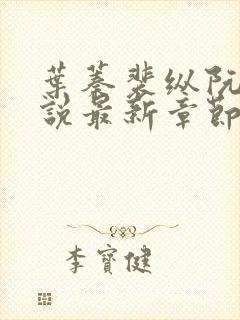 葉蓁裴纵阮
說最新章節
李寶健